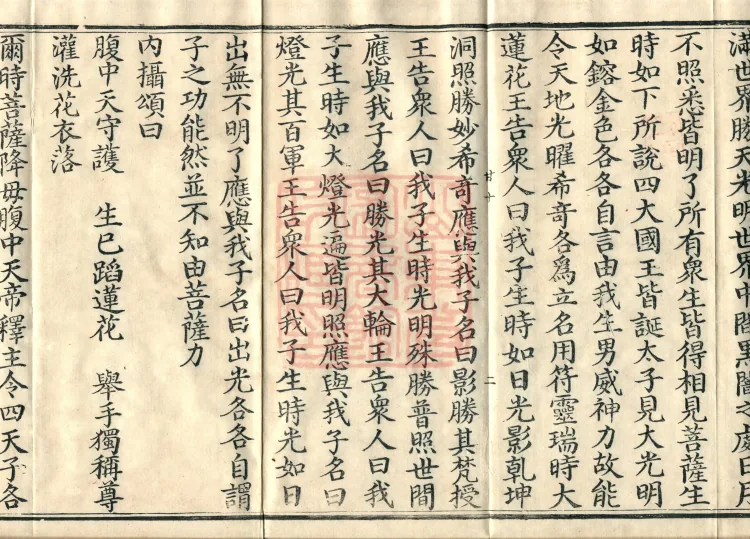 滿世界勝天光明世界中闇黑闇之處日月
不照悉皆明了所有衆生皆得相見菩薩生
時如下所說四大國王皆誕太子見大光明
如鎔金色各各自言由我生男威神力故能
令天地光曜希奇各爲立名用符靈瑞時大
蓮花王告衆人曰我子生時如日光影乾坤
洞照勝妙希奇應與我子名曰影勝其梵授
王告衆人曰我子生時光明殊勝普照世間
應與我子名曰勝光其大輪王告衆人曰我
子生時如大燈光遍皆明照應與我子名曰
燈光其百軍王告衆人曰我子生時光如日
出無不明了應與我子名曰出光各各自謂
子之功能然並不知由菩薩力
內攝頌曰
腹中天守護 生已蹈蓮花 舉手獨稱尊
灌洗花衣落
爾時菩薩降母腹中天帝釋主令四天子各